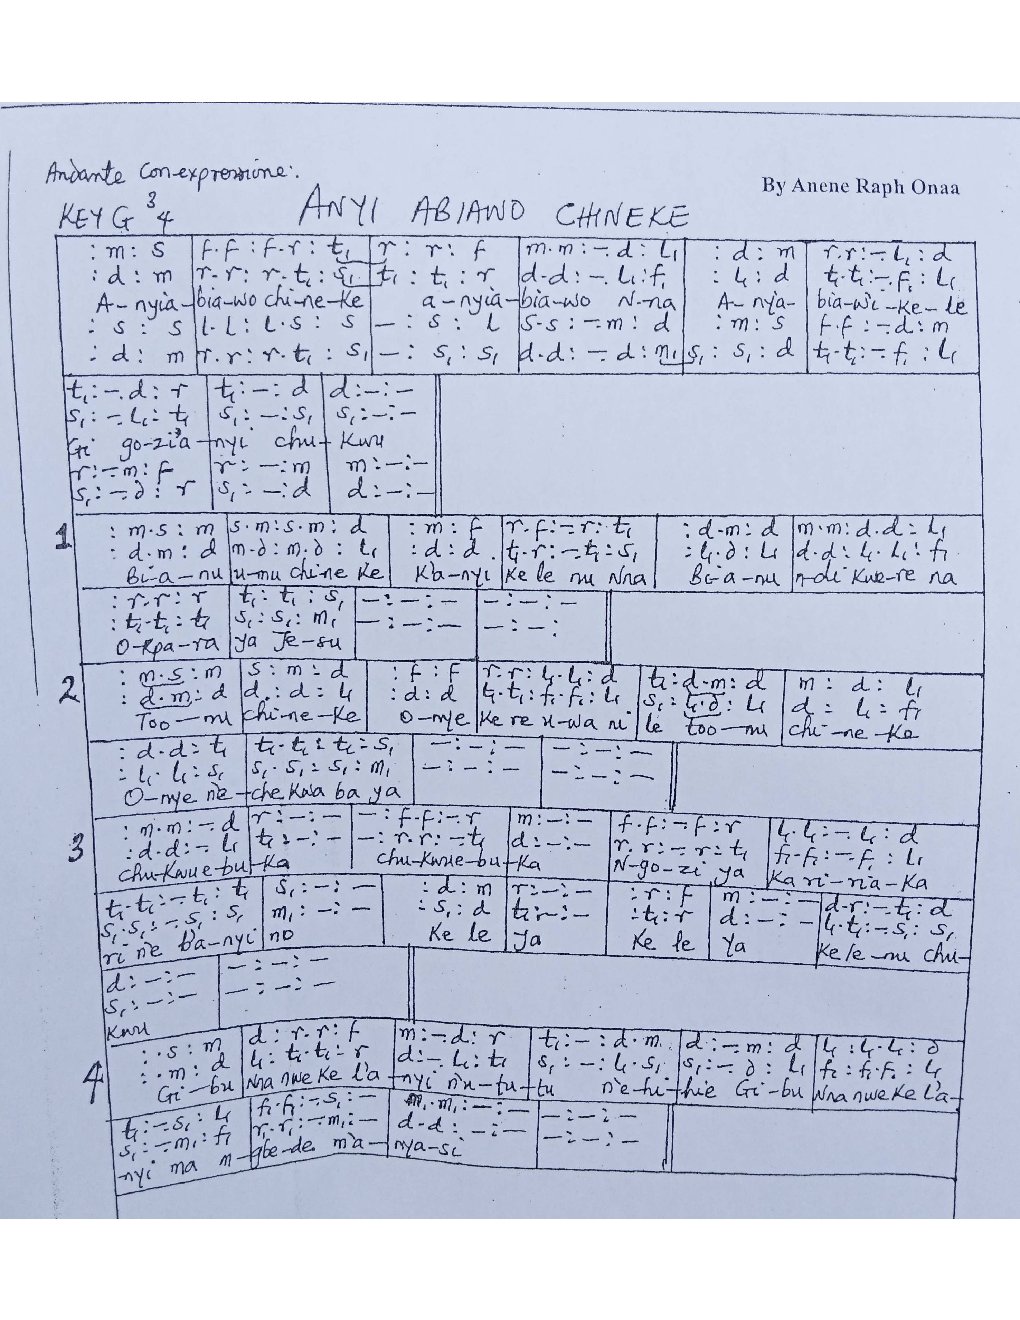 Andante Con-expressione:.
By Anene Raph Onaa
KEY G 3 4
ANYI ABIAWO CHINEKE
: m : s | f.f : f.r : t₁ | r : r : f | m.m : -.d : l₁ | : d : m | r.r : -.l₁ : d
: d : m | r.r : r.t₁ : s₁ | t₁ : t₁ : r | d.d : -.l₁ : f₁ | : l₁ : d | t₁.t₁ : -.f₁ : l₁
A-nyia-bia-wo chi-ne-ke a-nyia-bia-wo N-na A-nya-bia-wi-ke-le
: s : s | l.l : l.s : s | - : s : l | s.s : -.m : d | : m : s | f.f : -.d : m
: d : m | r.r : r.t₁ : s₁ | - : s₁ : s₁ | d.d : -.d : m₁ | s₁ : s₁ : d | t₁.t₁ : -.f₁ : l₁
t₁ : -.d : r | t₁ : - : d | d : - : -
s₁ : -.l₁ : t₁ | s₁ : - : s₁ | s₁ : - : -
Gi go-zia-nyi chu-kwu
r : -.m : f | r : - : m | m : - : -
s₁ : -.d : r | s₁ : - : d | d : - : -
1 : m.s : m | s.m : s.m : d | : m : f | r.f : -.r : t₁ | : d.m : d | m.m : d.d : l₁
: d.m : d | m.d : m.d : l₁ | : d : d | t₁.r : -.t₁ : s₁ | : l₁.d : l₁ | d.d : l₁.l₁ : f₁
Bi-a-nu u-mu chi-ne ke K'a-nyi ke le nu Nna Bi-a-nu n-di kwe-re na
: r.r : r | t₁ : t₁ : s₁ | - : - : - | - : - : -
: t₁.t₁ : t₁ | s₁ : s₁ : m₁ | - : - : - | - : - :
O-kpa-ra ya Je-su
2 : m.s : m | s : m : d | : f : f | r.r : l₁.l₁ : d | t₁ : d.m : d | m : d : l₁
: d.m : d | d : d : l₁ | : d : d | t₁.t₁ : f₁.f₁ : l₁ | s₁ : l₁.d : l₁ | d : l₁ : f₁
Too-nu chi-ne-ke O-nye ke re u-wa ni le too-nu chi-ne-ke
: d.d : t₁ | t₁.t₁ : t₁ : s₁ | - : - : - | - : - : -
: l₁.l₁ : s₁ | s₁.s₁ : s₁ : m₁ | - : - : - | - : - : -
O-nye ne-che kwa ba ya
3 : m.m : -.d | r : - : - | - : f.f : -.r | m : - : - | f.f : -.f : r | l₁.l₁ : -.l₁ : d
: d.d : -.l₁ | t₁ : - : - | - : r.r : -.t₁ | d : - : - | r.r : -.r : t₁ | f₁.f₁ : -.f₁ : l₁
chu-kwue-bu-ka chu-kwue-bu-ka N-go-zi ya ka ri-ria-ka
t₁.t₁ : -.t₁ : t₁ | s₁ : - : - | : d : m | r : - : - | : r : f | m : - : - | d.r : -.t₁ : d
s₁.s₁ : -.s₁ : s₁ | m₁ : - : - | : s₁ : d | t₁ : - : - | : t₁ : r | d : - : - | l₁.t₁ : -.s₁ : s₁
ri ne b'a-nyi no ke le ya ke le ya ke le-nu chu-
d : - : - | - : - : -
s₁ : - : - | - : - : -
kwu
4 : .s : m | d : r.r : f | m : -.d : r | t₁ : - : d.m | d : -.m : d | l₁ : l₁.l₁ : d
: .m : d | l₁ : t₁.t₁ : r | d : -.l₁ : t₁ | s₁ : - : l₁.s₁ | s₁ : -.d : l₁ | f₁ : f₁.f₁ : l₁
Gi-bu Nna nwe ke l'a-nyi n'u-tu-tu n'e-hi-hie Gi-bu Nna nwe ke l'a-
t₁ : -.s₁ : l₁ | f₁.f₁ : -.s₁ : - | m₁.m₁ : - : - | - : - : -
s₁ : -.m₁ : f₁ | r₁.r₁ : -.m₁ : - | d.d : - : - | - : - : -
nyi ma m-gbe-de m'a-nya-si